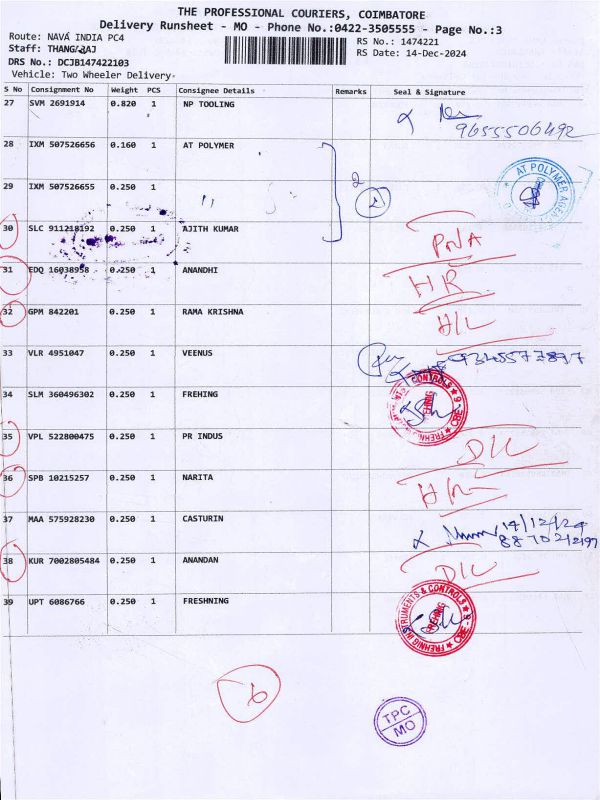 THE PROFESSIONAL COURIERS, COIMBATORE
Delivery Runsheet - MO - Phone No.:0422-3505555 - Page No.:3
Route: NAVA INDIA PC4
RS No.: 1474221
Staff: THANGARAJ
RS Date: 14-Dec-2024
DRS No.: DCJB147422103
Vehicle: Two Wheeler Delivery-
S No Consignment No Weight PCS Consignee Details Remarks Seal & Signature
27 SVM 2691914 0.820 1 NP TOOLING
9655506492
28 IXM 507526656 0.160 1 AT POLYMER
29 IXM 507526655 0.250 1 " 2 1
AT POLYMER
30 SLC 911218192 0.250 1 AJITH KUMAR PNA
31 EDQ 16038958 0.250 1 ANANDHI HR
32 GPM 842201 0.250 1 RAMA KRISHNA H/L
33 VLR 4951047 0.250 1 VEENUS
34 SLM 360496302 0.250 1 FREHING
FREHNIG INSTRUMENTS & CONTROLS CBE-6
35 VPL 522800475 0.250 1 PR INDUS D/L
36 SPB 10215257 0.250 1 NARITA
37 MAA 575928230 0.250 1 CASTURIN 14/12/24
38 KUR 7002805484 0.250 1 ANANDAN D/L
39 UPT 6086766 0.250 1 FRESHNING
FREHNIG INSTRUMENTS & CONTROLS CBE-6
6
TPC
MO